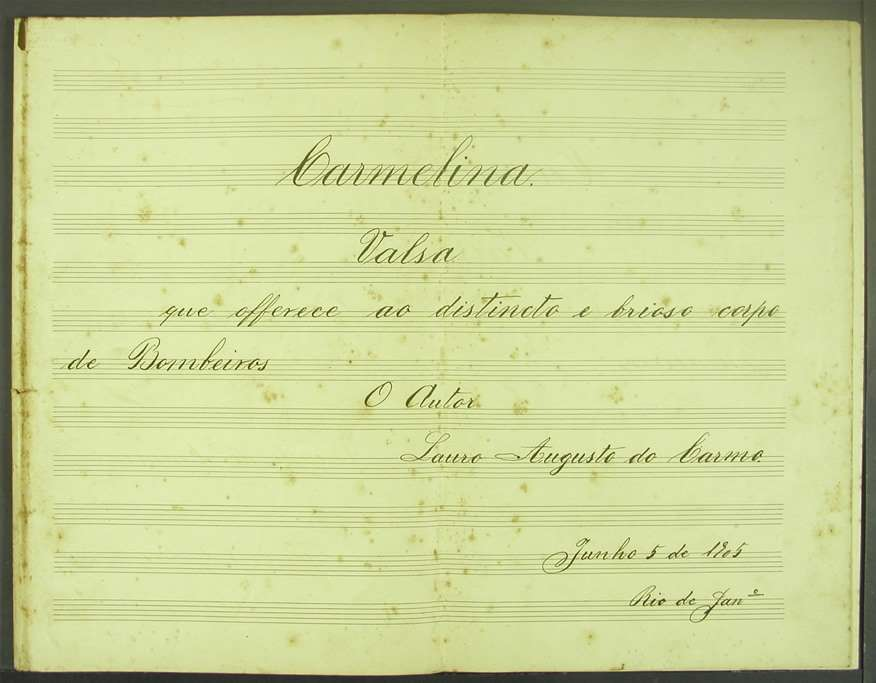 Carmelina.
Valsa
que offerece ao distincto e brioso corpo
de Bombeiros
O Autor
Lauro Augusto do Carmo.
Junho 5 de 1905
Rio de Janº